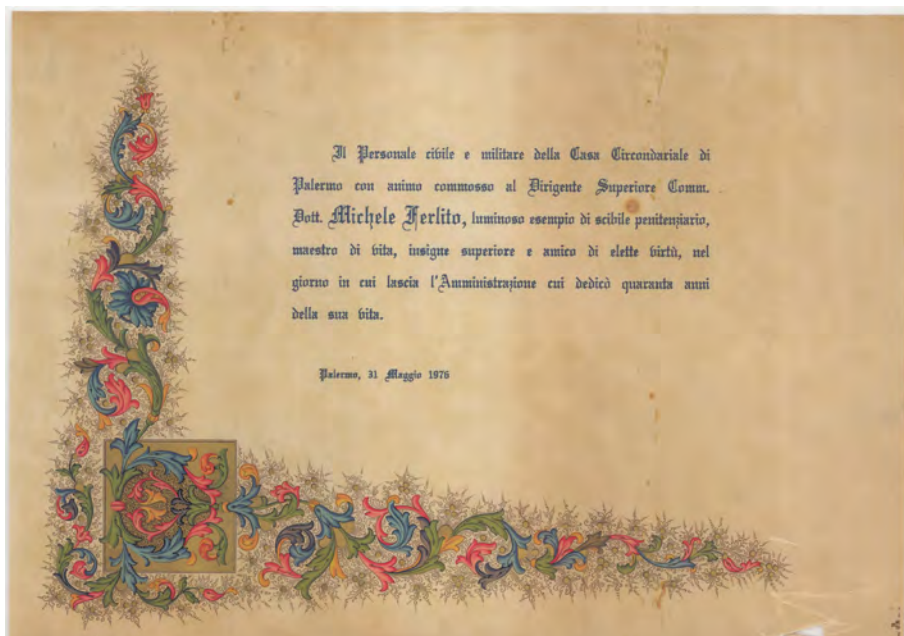 Il Personale civile e militare della Casa Circondariale di
Palermo con animo commosso al Dirigente Superiore Comm.
Dott. Michele Ferlito, luminoso esempio di scibile penitenziario,
maestro di vita, insigne superiore e amico di elette virtù, nel
giorno in cui lascia l'Amministrazione cui dedicò quaranta anni
della sua vita.
Palermo, 31 Maggio 1976